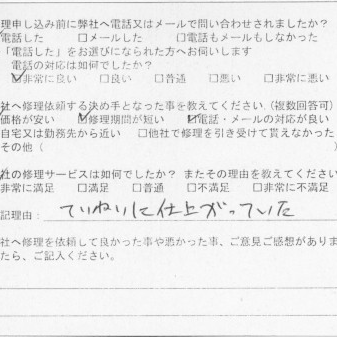 理申し込み前に弊社へ電話又はメールで問い合わせされましたか?
電話した □メールした □電話もメールもしなかった
「電話した」をお選びになられた方へお伺いします
電話の対応は如何でしたか?
☑非常に良い □良い □普通 □悪い □非常に悪い
社へ修理依頼する決め手となった事を教えてください(複数回答可)
価格が安い ☑修理期間が短い ☑電話・メールの対応が良い
自宅又は勤務先から近い □他社で修理を引き受けて貰えなかった
その他( )
社の修理サービスは如何でしたか? またその理由を教えてください
非常に満足 □満足 □普通 □不満足 □非常に不満足
記理由: ていねいに仕上がっていた
社へ修理を依頼して良かった事や悪かった事、ご意見ご感想がありま
たら、ご記入ください。